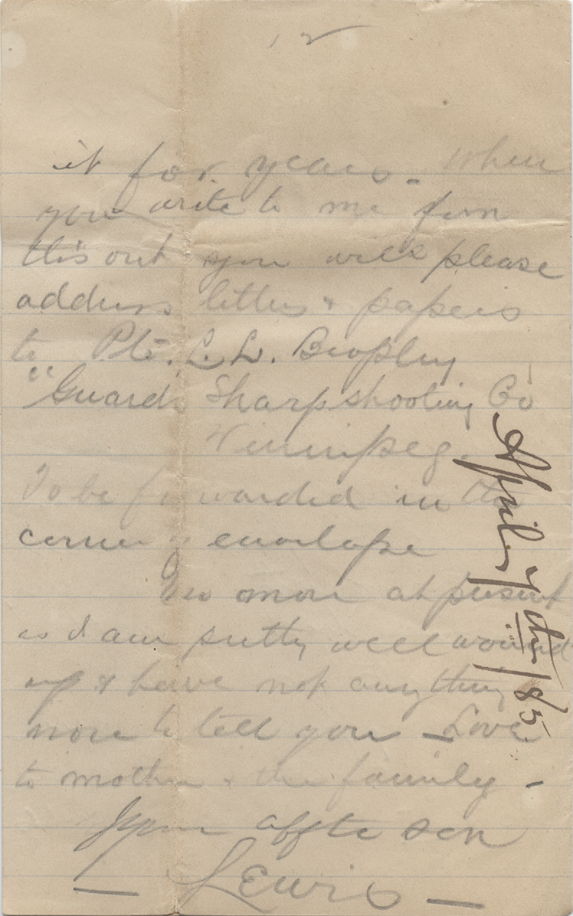 12
it for years. When
you write to me from
this out you will please
address letters & papers
to Pte. L. L. Brophy
"Guards Sharpshooting Co
Winnipeg.
To be forwarded in the
corner of envelope
No more at present
as I am pretty well wound
up & have not anything
more to tell you - Love
to mother & the family -
Your affte son
- Lewis -
April 7th/85